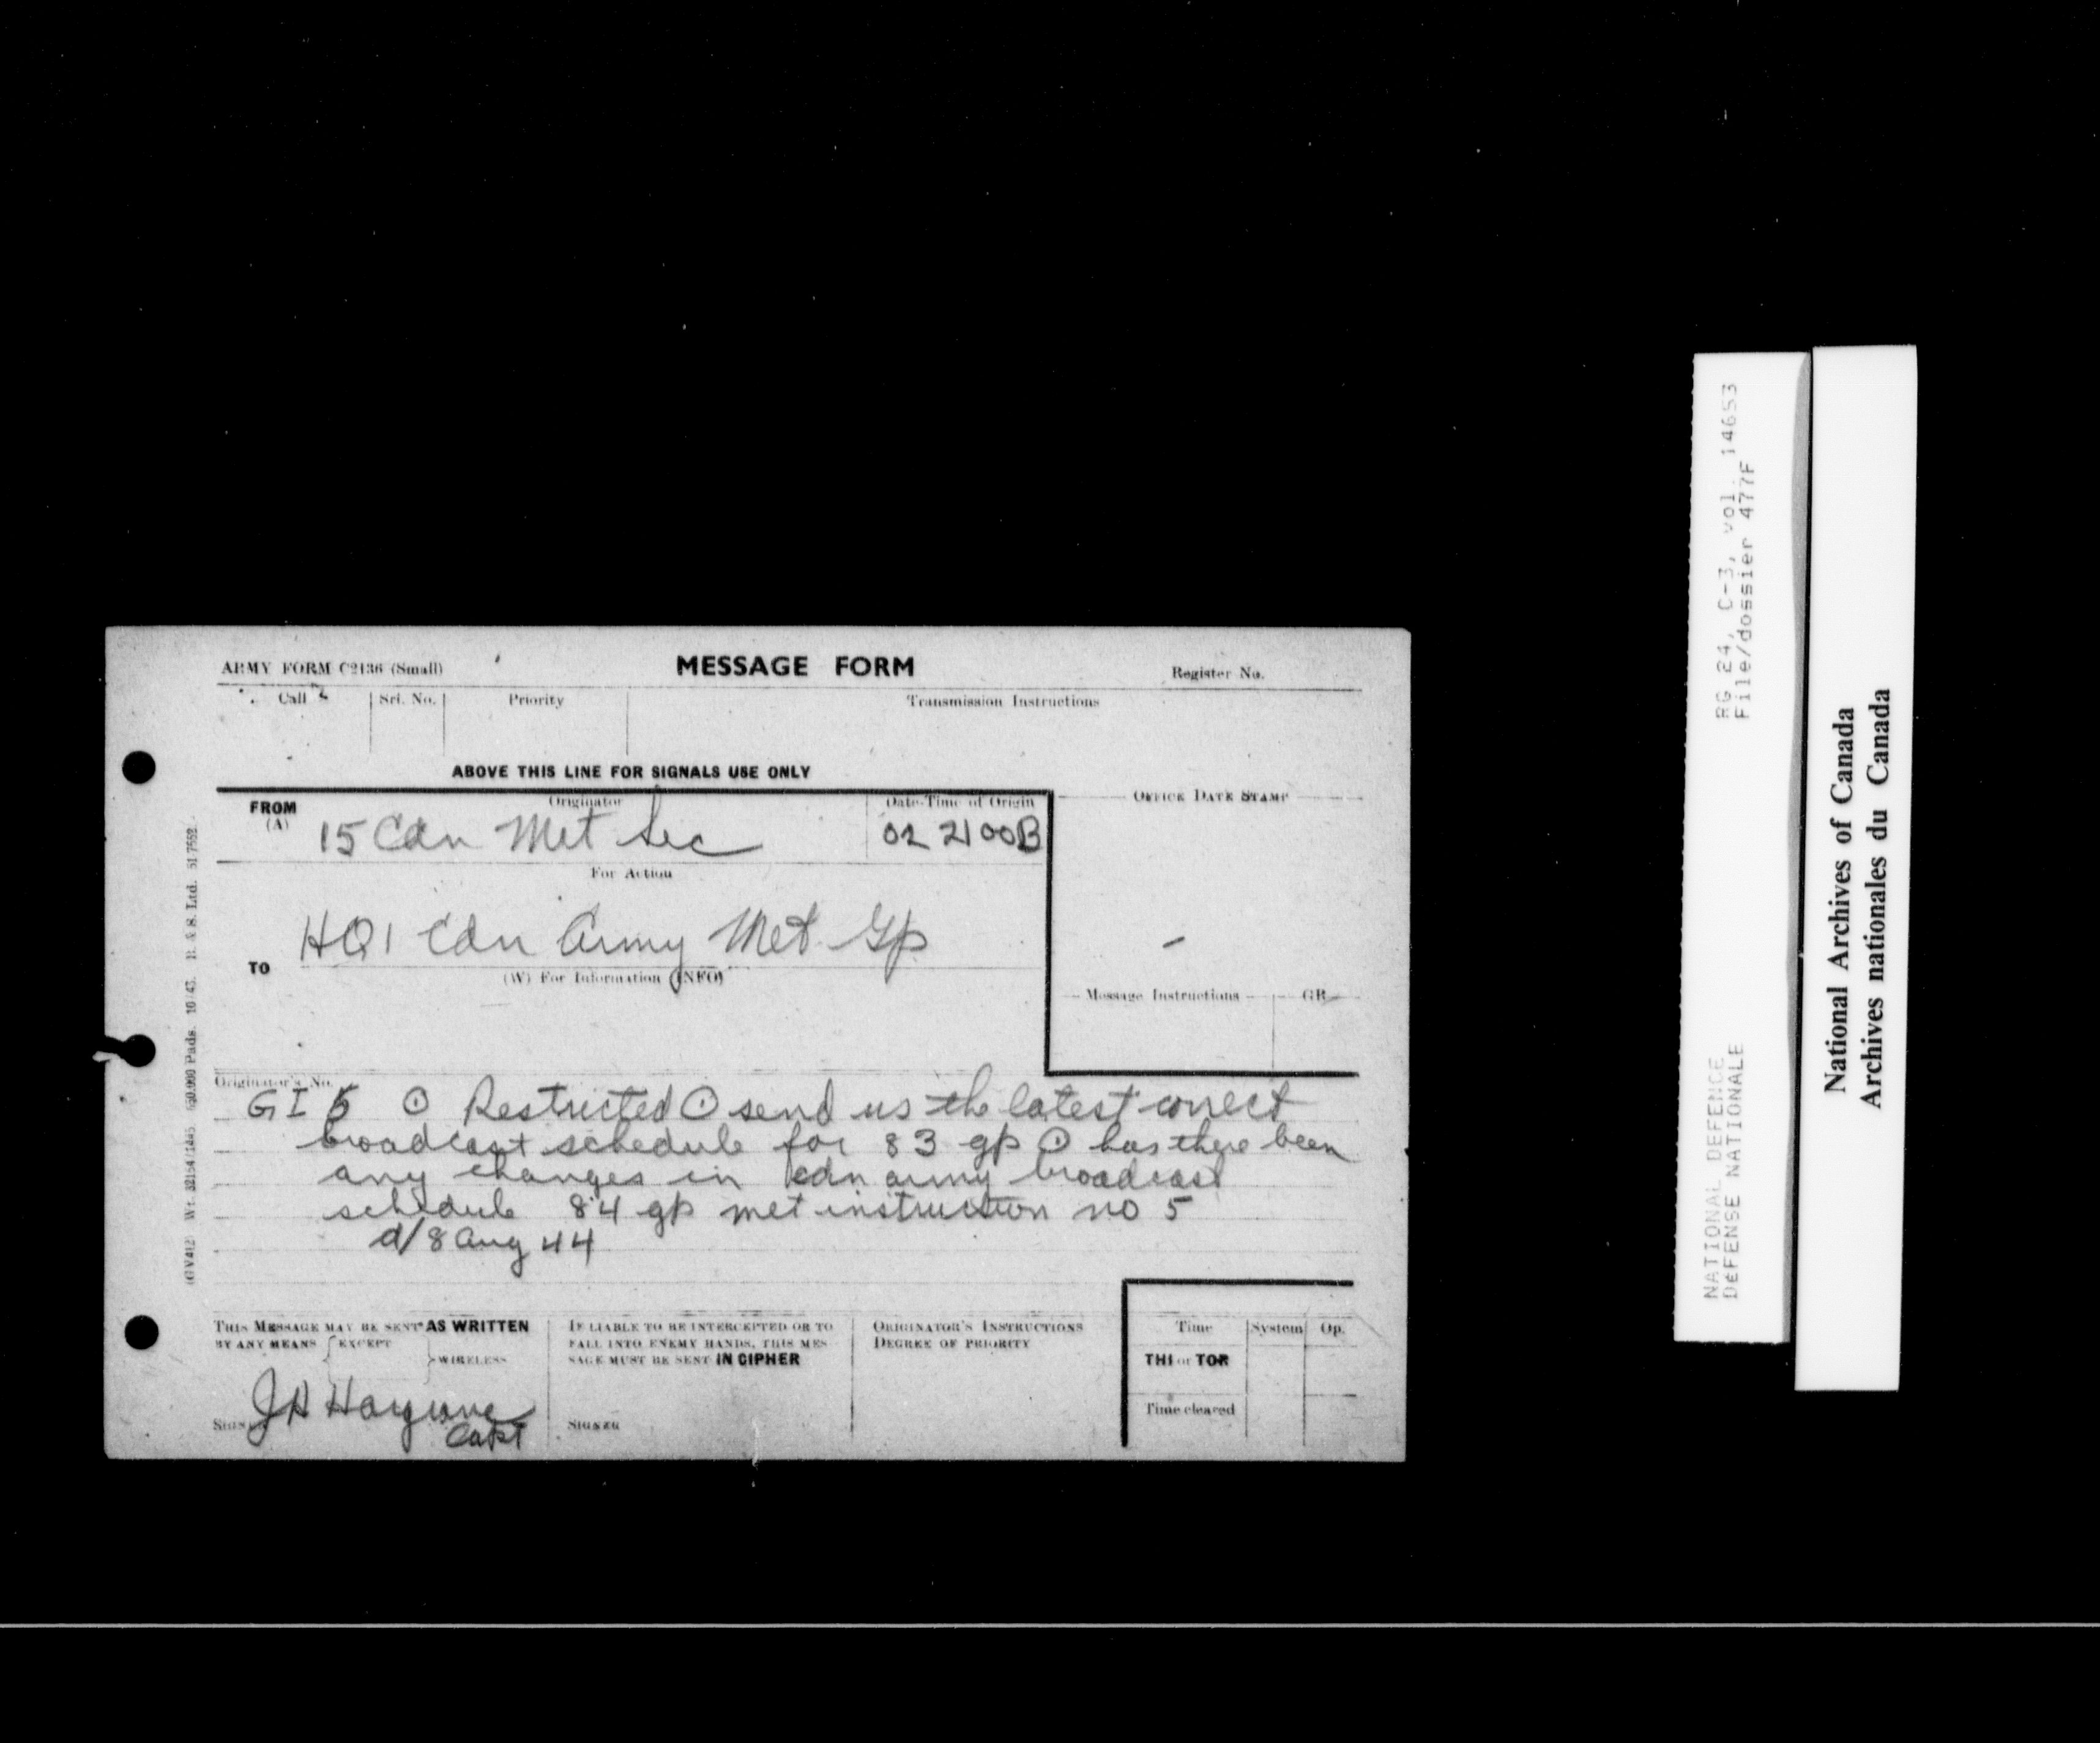 ARMY FORM C2136 (Small)
MESSAGE FORM
Register No.
Call
Srl. No.
Priority
Transmission Instructions
ABOVE THIS LINE FOR SIGNALS USE ONLY
FROM
(A)
Originator
Date-Time of Origin
OFFICE DATE STAMP
15 Cdn Met Sec
02 2100B
For Action
TO
HQ 1 Cdn Army Met Gp
(W) For Information (INFO)
Message Instructions
GR
Originator's No.
GI 6 ⊙ Restricted ⊙ send us the latest correct
broadcast schedule for 83 gp ⊙ has there been
any changes in cdn army broadcast
schedule 84 gp met instruction no 5
d/8 Aug 44
THIS MESSAGE MAY BE SENT AS WRITTEN
BY ANY MEANS { EXCEPT
} WIRELESS
SIGNED
Capt
IF LIABLE TO BE INTERCEPTED OR TO
FALL INTO ENEMY HANDS, THIS MES-
SAGE MUST BE SENT IN CIPHER
SIGNED
ORIGINATOR'S INSTRUCTIONS
DEGREE OF PRIORITY
Time
System
Op.
THI or TOR
Time cleared
RG 24, C-3, vol. 14653
File/dossier 477F
NATIONAL DEFENCE
DEFENSE NATIONALE
National Archives of Canada
Archives nationales du Canada